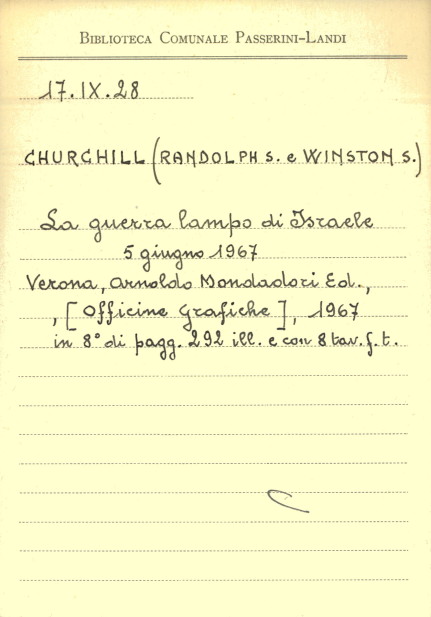 BIBLIOTECA COMUNALE PASSERINI-LANDI
17.IX.28
CHURCHILL (RANDOLPH S. e WINSTON S.)
La guerra lampo di Israele
5 giugno 1967
Verona, Arnoldo Mondadori Ed.,
, [Officine Grafiche], 1967
in 8° di pagg. 292 ill. e con 8 tav. f. t.